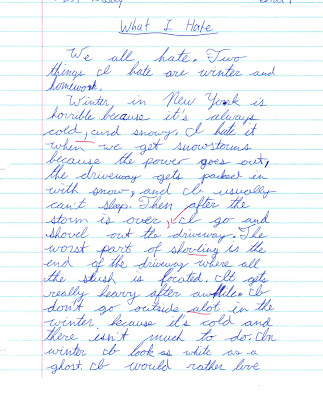 What I Hate
We all hate. Two
things I hate are winter and
homework.
Winter in New York is
horrible because it's always
cold, and snowy. I hate it
when we get snowstorms
because the power goes out,
the driveway gets packed in
with snow, and I usually
can't sleep. Then after the
storm is over, I go and
shovel out the driveway. The
worst part of is the
end of the driveway where all
the slush is located. It gets
really heavy after awhile. I
don't go outside alot in the
winter because it's cold and
there isn't much to do. In
winter I look as white as a
ghost. I would rather live